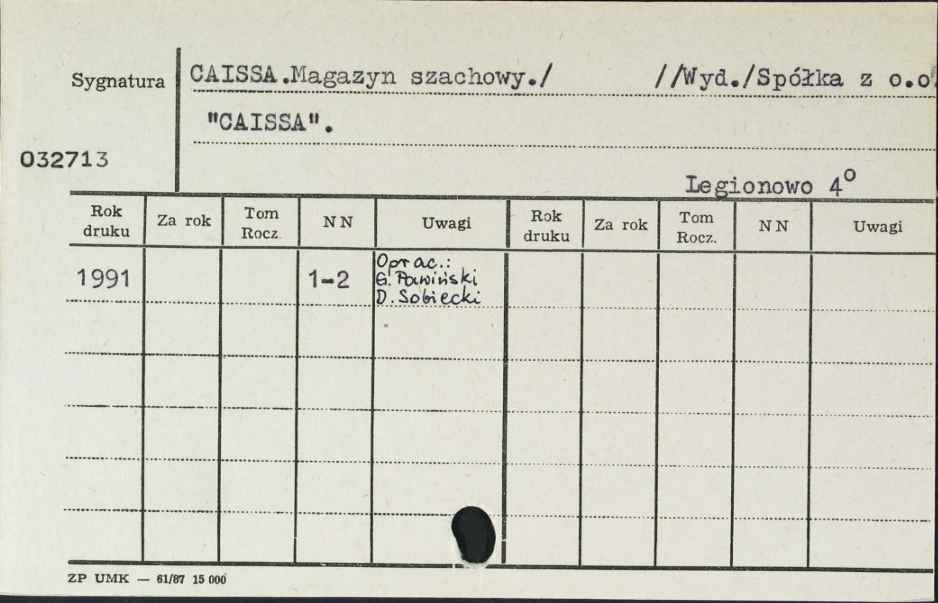 Sygnatura
CAISSA.Magazyn szachowy./ //Wyd./Spółka z o.o.
"CAISSA".
032713
Legionowo 4⁰
Rok druku Za rok Tom Rocz. NN Uwagi Rok druku Za rok Tom Rocz. NN Uwagi
1991 1-2 Oprac.:
G. Pawiński
D. Sobiecki
ZP UMK — 61/87 15 000